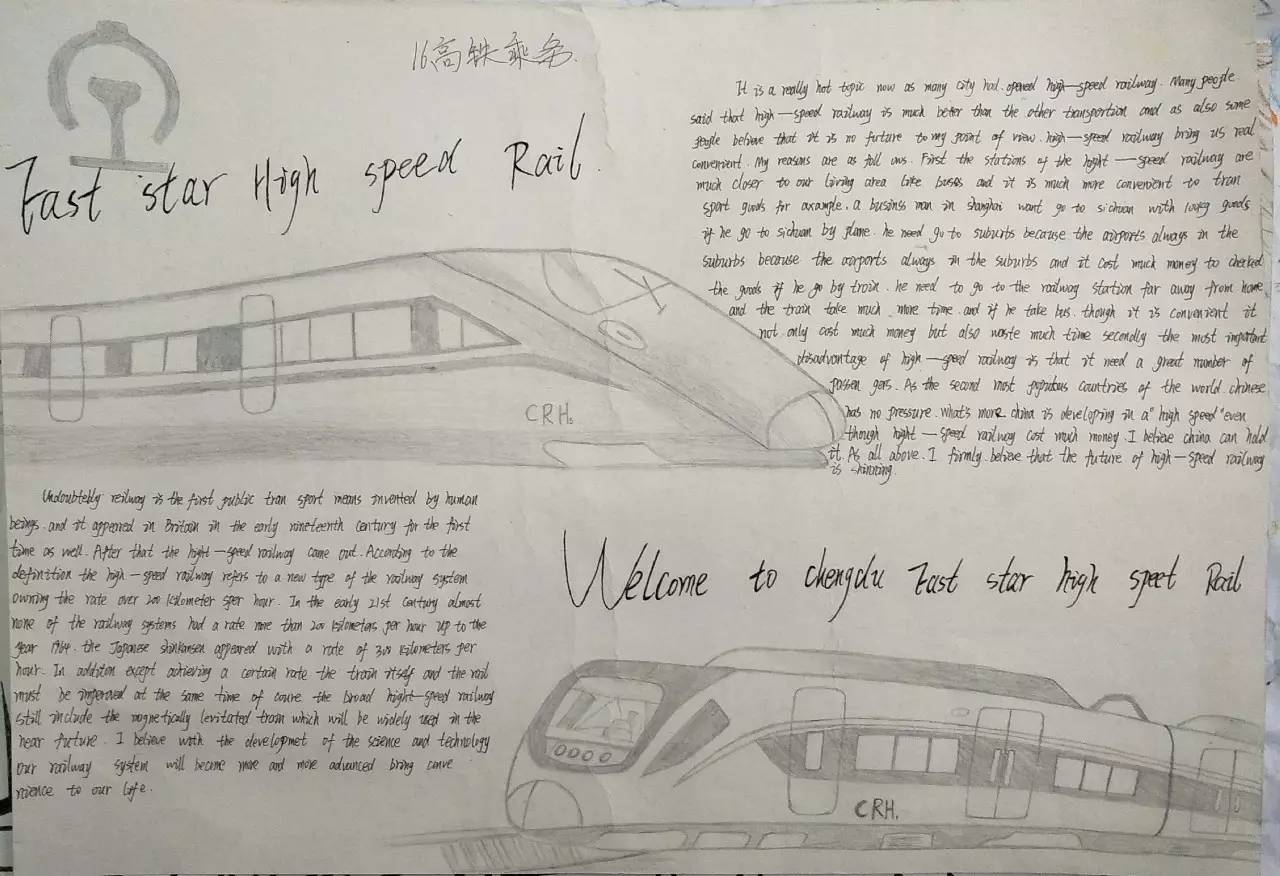 16高铁乘务
East star High speed Rail.
It is a really hot topic now as many city had opened high-speed railway. Many people
said that high-speed railway is much beter than the other transportion and as also some
people believe that it is no future to my point of view. high-speed railway bring us real
convenient. My reasons are as foll ows. First the stations of the hight-speed railway are
much closer to our living area like buses and it is much more convenient to tran
sport goods for axample. a businss man in shanghai want go to sichuan with 100kg goods
if he go to sichuan by plane. he need go to suburbs because the airports always in the
suburbs because the airports always in the suburbs and it cost much money to checked
the goods if he go by train. he need to go to the railway station far away from home
and the train take much more time. and if he take bus. though it is convenient it
not only cost much money but also waste much time secondly the most important
disadvantage of high-speed railway is that it need a great number of
passen gers. As the second most populous countries of the world. chinese
has no pressure. what's more china is developing in a "high speed" even
though hight-speed railway cost much money. I believe china can hold
it. As all above. I firmly believe that the future of high-speed railway
is shinning.
Undoubtebly reilway is the first public tran sport means invented by human
beings. and it appeared in Britain in the early nineteenth century for the first
time as well. After that the hight-speed railway came out. According to the
definition the high-speed railway refers to a new type of the railway system
owning the rate over 200 kilometer sper hour. In the early 21st century almost
none of the railway systems had a rate more than 200 kilometers per hour up to the
year 1964. the Japanese shinkansen appeared with a rate of 300 kilometers per
hour. In additon except achieving a certain rate the train itself and the rail
must be improved at the same time of coure the broad hight-speed railway
still include the magnetically levitated train which will be widely used in the
near future. I believe with the developmet of the science and technology
our railway system will become more and more advanced bring conve
nience to our life.
CRH5
Welcome to chengdu East star high speet Rail
CRH1